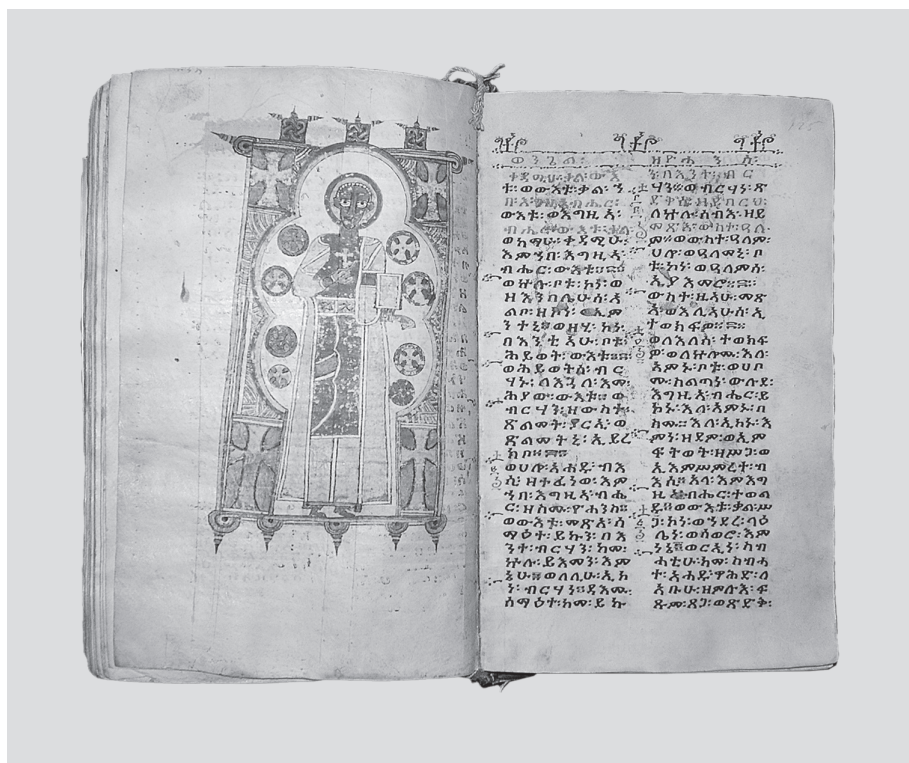 ወንጌል፡ ዘዮሐንስ፡
ቀዳሚሁ፡ቃል፡ውእ
ቱ፡ወውእቱ፡ቃል፡ኀ
በ፡እግዚአብሔር፡
ውእቱ፡ወእግዚአ፡
ብሔር፡ውእቱ፡ቃል፡
ወከማሁ፡ቀዳሚሁ፡
እምኀበ፡እግዚአ፡
ብሔር፡ውእቱ።
ወኵሉ፡ቦቱ፡ኮነ፡ወ
ዘእንበሌሁሰ፡አ
ልቦ፡ዘኮነ፡ወኢም
ንተኒ።ወዘሂ፡ኮነ፡
በእንቲአሁ፡ቦቱ፡
ሕይወት፡ውእቱ።
ወሕይወትሰ፡ብር
ሃኑ፡ለእጓለ፡እመ
ሕያው፡ውእቱ።ወ
ብርሃን፡ዘውስተ፡
ጽልመት፡ያርኢ፡ወ
ጽልመትኒ፡ኢይረ
ክቦ።
ወሀሎ፡አሐዱ፡ብእ
ሲ፡ዘተፈነወ፡እም
ኀበ፡እግዚአ፡ብሔ
ር፡ዘስሙ፡ዮሐንስ።
ወውእቱ፡መጽአ፡ሰ
ማዕተ፡ይኩን፡በእ
ንተ፡ብርሃን፡ከመ፡
ኵሉ፡ይእመን፡እም
ኔሁ።ወለሊሁ፡ኢኮ
ነ፡ብርሃን።ዳእሙ፡
ሰማዕተ፡ከመ፡ይኩ
ን፡በእንተ፡ብር
ሃን።ወብርሃነ፡ጽ
ድቅሰ፡ዘያበርህ፡
ለኵሉ፡ሰብእ፡ዘይ
መጽእ፡ውስተ፡ዓለ
ም።ወውስተ፡ዓለም፡
ሀሎ፡ወዓለምኒ፡ቦ
ቱ፡ኮነ፡ወዓለምሰ፡
ኢያእመሮ።
ውስተ፡ዚአሁ፡መጽ
አ፡ወእሊአሁሰ፡ኢ
ተወክፍዎ።
ወለእለሰ፡ተወክፍ
ዎ፡ወለኵሎሙ፡እለ፡
አምኑ፡ቦቱ፡ወሀቦ
ሙ፡ስልጣነ፡ውሉደ፡
እግዚአ፡ብሔር፡ይ
ኩኑ፡እለ፡አምኑ፡በ
ስሙ።እለ፡ኢኮኑ፡እ
ምነ፡ዘደም፡ወኢም
ፍትወት፡ዘሥጋ፡ወ
ኢእምሥምረተ፡ብ
እሲ።አላ፡እምእግ
ዚአብሔር፡ተወል
ዱ።ወውእቱ፡ቃል፡ሥ
ጋ፡ኮነ፡ወኀደረ፡ላዕ
ሌነ፡
ወርኢነ፡ስብ
ሐቲሁ፡ከመ፡ስብሐ
ተ፡አሐዱ፡ዋሕድ፡ለ
አቡሁ፡ዘምሉእ፡
ወጽድቅ፡